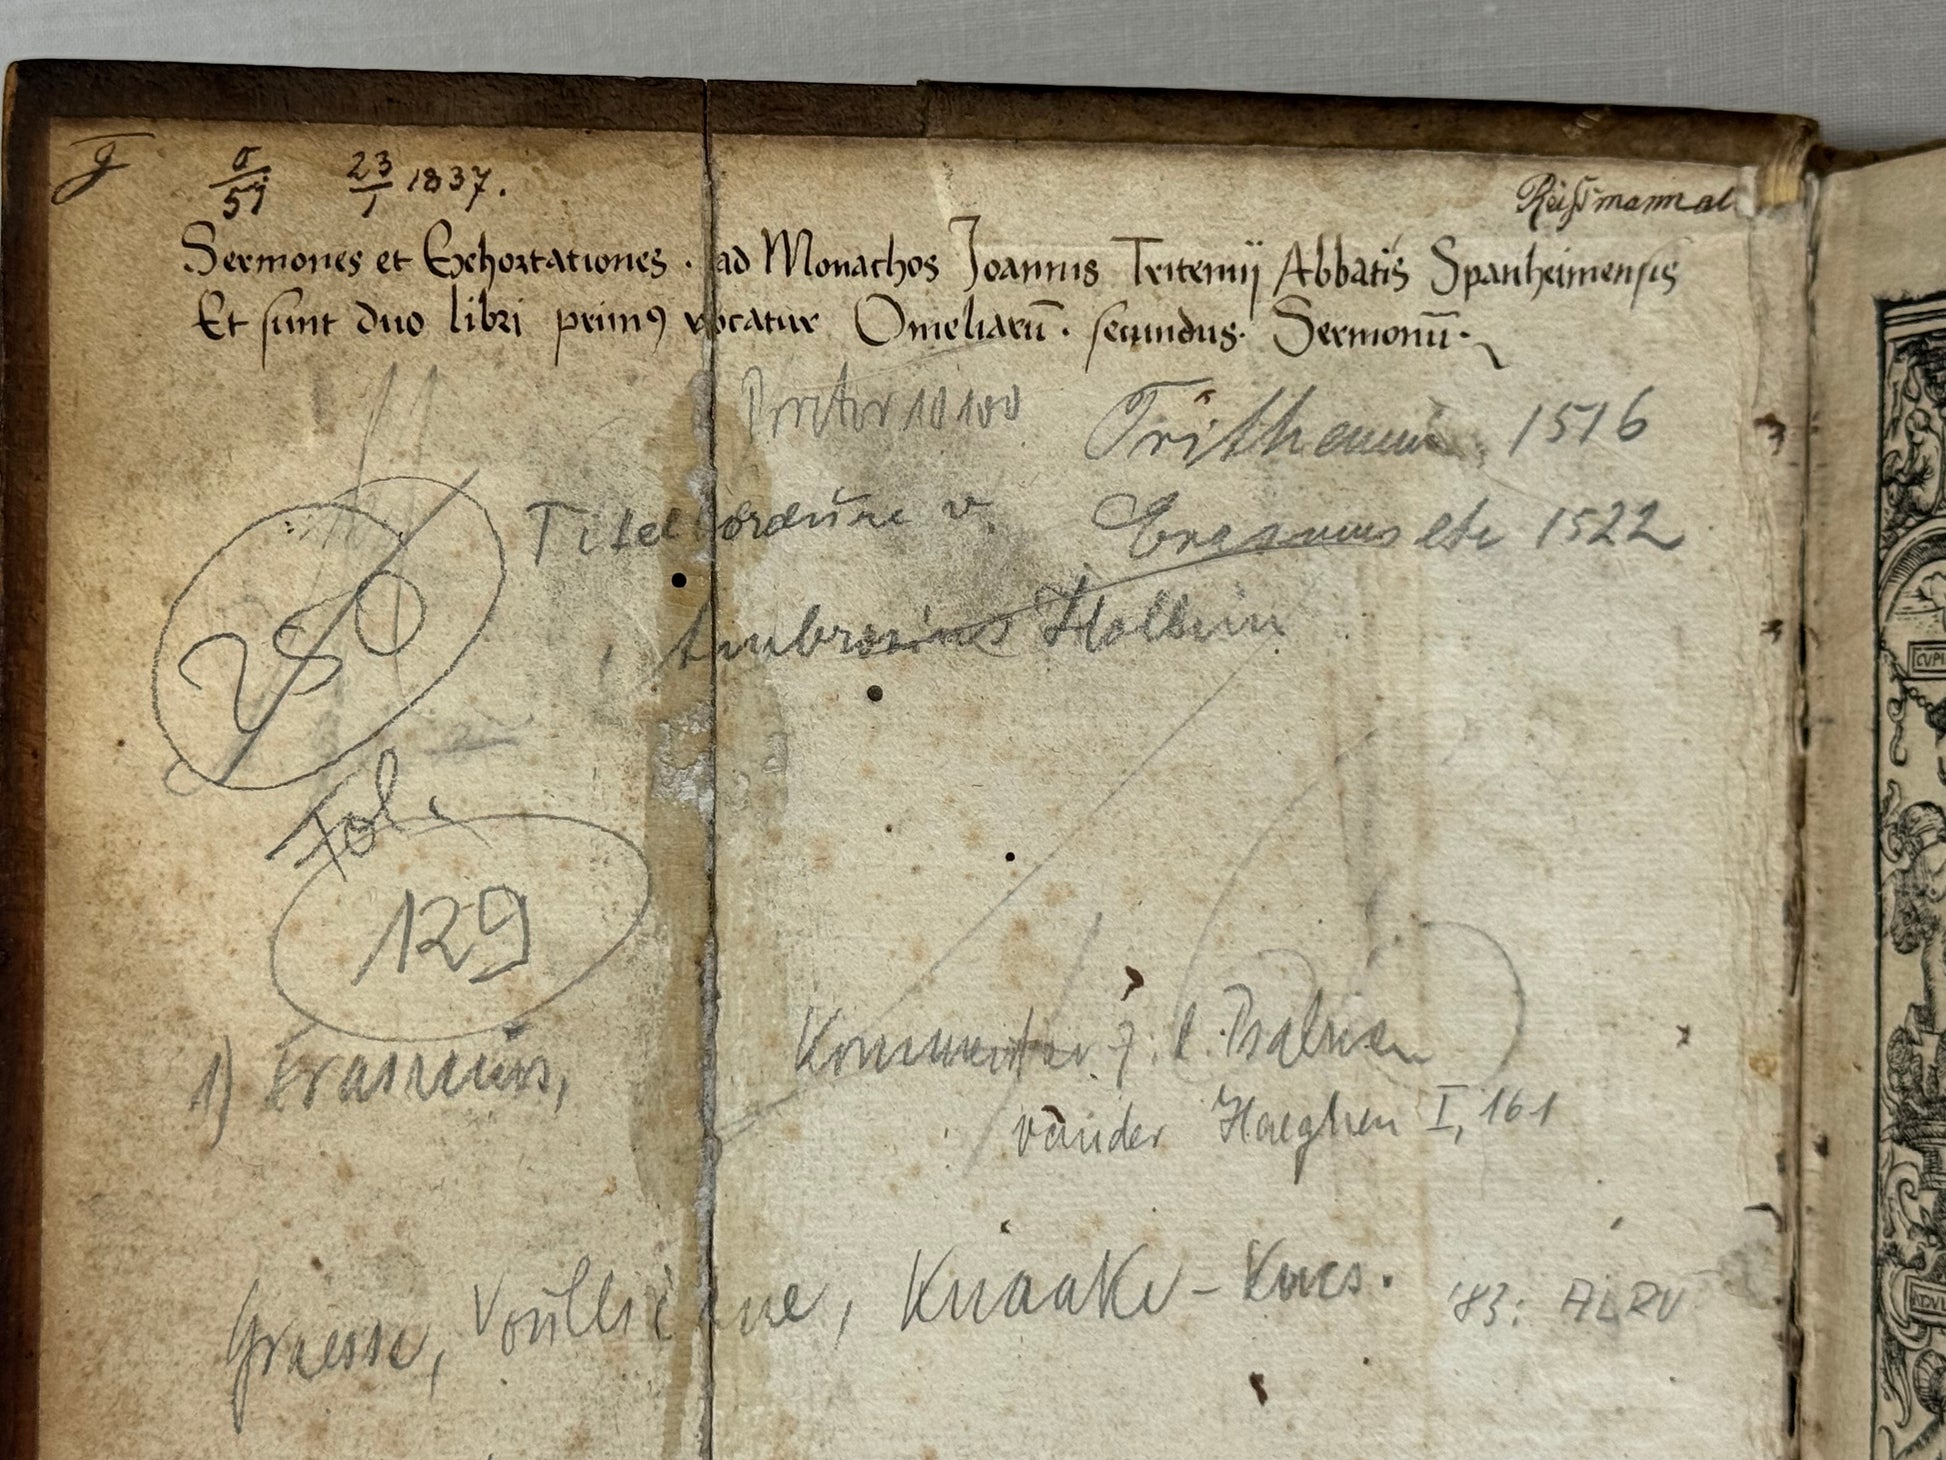 23/1 1837.
Sermones et Exhortationes · ad Monachos Joannis Tritemij Abbatis Spanheimensis
Et sunt duo libri primꝰ vocatur Omeliarū · secundus · Sermonū ·
1516
Titelbordüre v. Erasmus etc 1522
Ambrosius Holbein
280
Fol.
129
1) Erasmus, Kommentar z. d. Psalmen
vander Haeghen I, 161
Graesse, Voullième, Knaake –